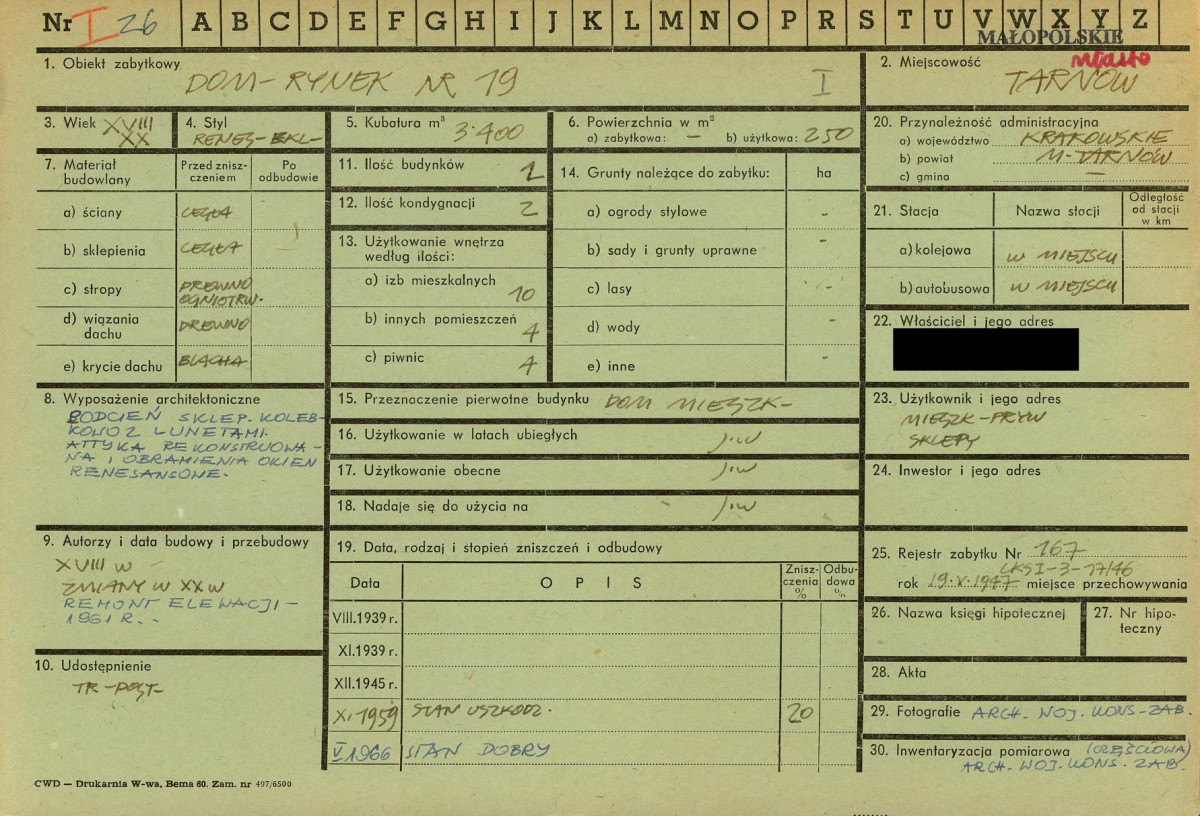 Nr I 26 A B C D E F G H I J K L M N O P R S T U V W X Y Z
MAŁOPOLSKIE
1. Obiekt zabytkowy
DOM-RYNEK NR 19 I
2. Miejscowość miasto
TARNÓW
3. Wiek XVIII
XX
4. Styl
RENES-EKL-
5. Kubatura m³ 3·400
6. Powierzchnia w m²
a) zabytkowa: — b) użytkowa: 250
20. Przynależność administracyjna
a) województwo KRAKOWSKIE
b) powiat M-TARNÓW
c) gmina —
7. Materiał budowlany
Przed znisz-
czeniem
Po
odbudowie
a) ściany CEGŁA
b) sklepienia CEGŁA
c) stropy DREWNO
OGNIOTRW.
d) wiązania
dachu DREWNO
e) krycie dachu BLACHA
11. Ilość budynków 1
12. Ilość kondygnacji 2
13. Użytkowanie wnętrza
według ilości:
a) izb mieszkalnych 10
b) innych pomieszczeń 4
c) piwnic 4
14. Grunty należące do zabytku: ha
a) ogrody stylowe -
b) sady i grunty uprawne -
c) lasy -
d) wody -
e) inne -
21. Stacja Nazwa stacji Odległość
od stacji
w km
a) kolejowa W MIEJSCU
b) autobusowa W MIEJSCU
22. Właściciel i jego adres
8. Wyposażenie architektoniczne
PODCIEŃ SKLEP. KOLEB-
KOWO Z LUNETAMI.
ATTYKA REKONSTRUOWA-
NA I OBRAMIENIA OKIEN
RENESANSOWE.
15. Przeznaczenie pierwotne budynku DOM MIESZK-
16. Użytkowanie w latach ubiegłych J.W
17. Użytkowanie obecne J.W
18. Nadaje się do użycia na - J.W
23. Użytkownik i jego adres
MIESZK-PRYW
SKLEPY
24. Inwestor i jego adres
9. Autorzy i data budowy i przebudowy
XVIII W -
ZMIANY W XX W
REMONT ELEWACJI -
1961 R. -
10. Udostępnienie
TR-DOST-
19. Data, rodzaj i stopień zniszczeń i odbudowy
Data OPIS Znisz-
czenia
% Odbu-
dowa
%
VIII.1939 r.
XI.1939 r.
XII.1945 r.
X.1959 STAN USZKODZ. 20
V 1966 STAN DOBRY
25. Rejestr zabytku Nr 167
LKSI-3-17/46
rok 19.X.1947 miejsce przechowywania
26. Nazwa księgi hipotecznej
27. Nr hipo-
teczny
28. Akta
29. Fotografie ARCH. WOJ. KONS-ZAB.
30. Inwentaryzacja pomiarowa (CZĘŚCIOWA)
ARCH. WOJ. KONS. ZAB.
CWD — Drukarnia W-wa, Bema 60. Zam. nr 497/6500